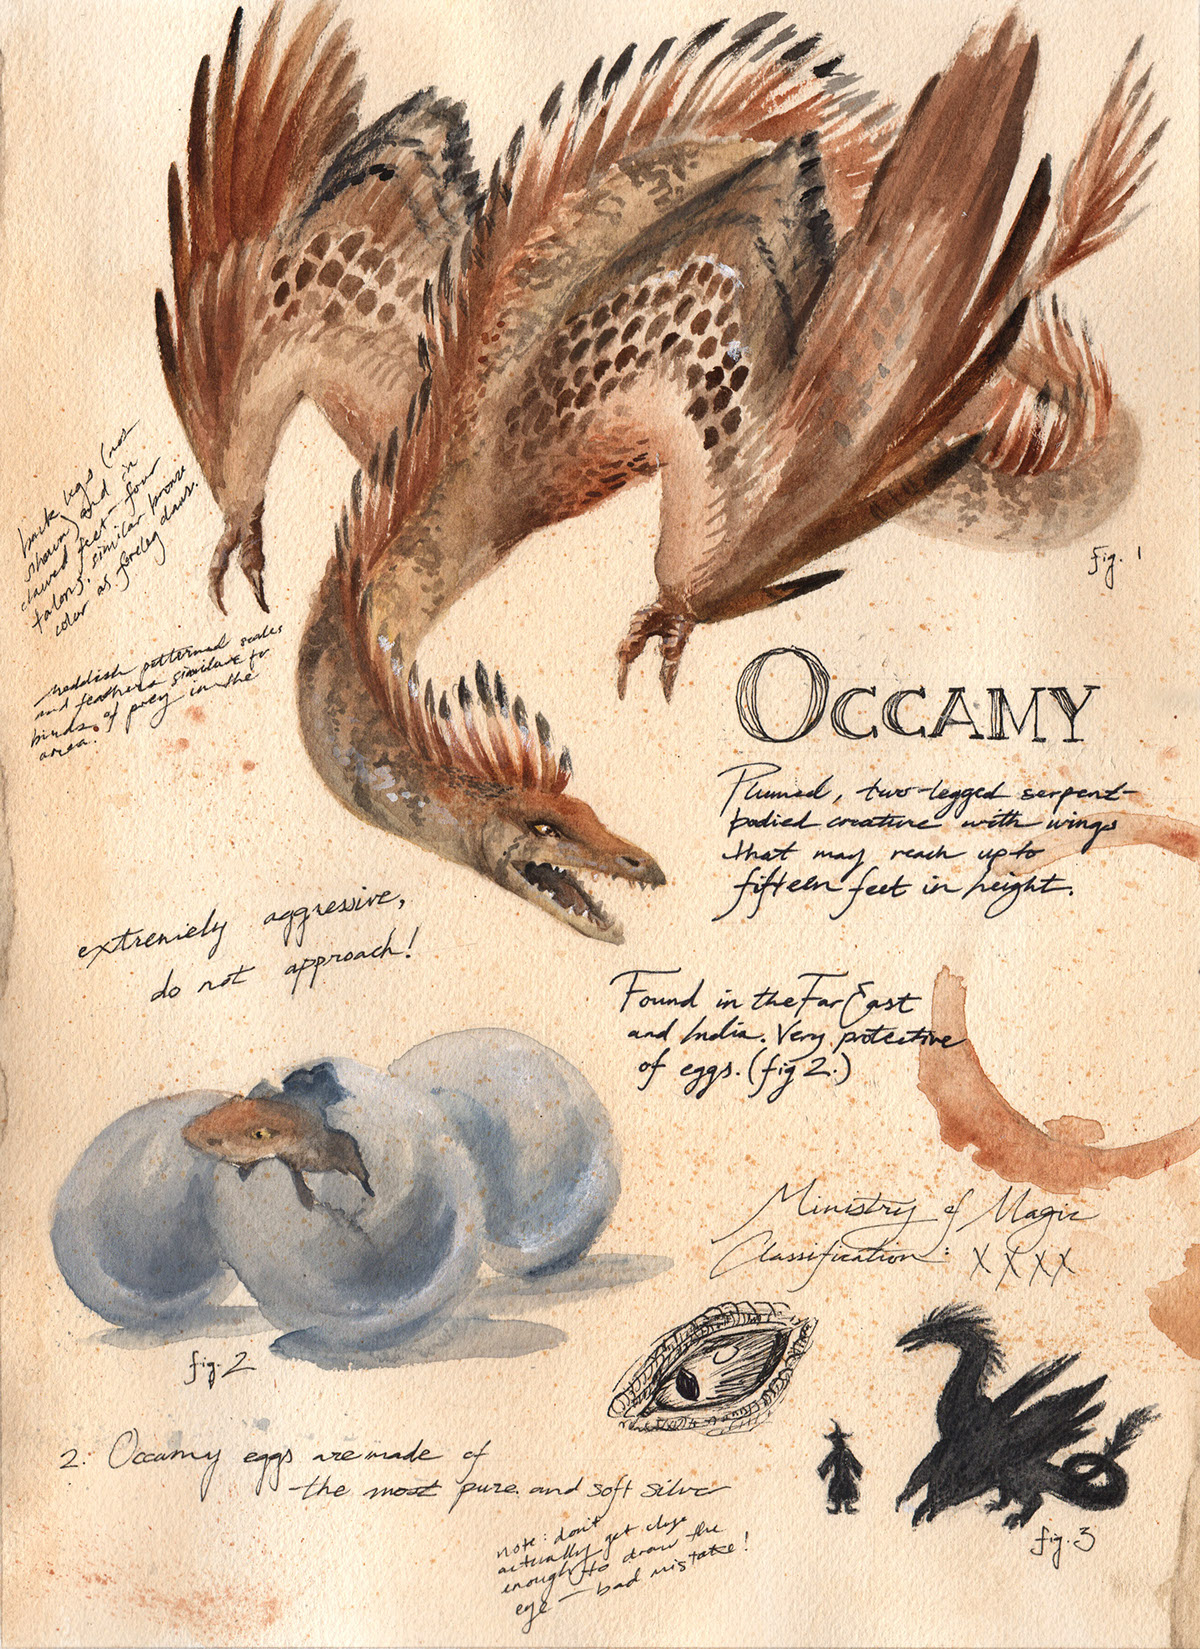 back legs (not
shown) end in
clawed feet - four
talons, similar bronze
color as foreleg claws.
reddish patterned scales
and feathers similar to
birds of prey in the
area.
fig. 1
OCCAMY
Plumed, two-legged serpent-
bodied creature with wings
that may reach up to
fifteen feet in height.
extremely aggressive,
do not approach!
Found in the Far East
and India. Very protective
of eggs. (fig 2.)
Ministry of Magic
Classification: XXXX
fig. 2
fig. 3
2. Occamy eggs are made of
the most pure and soft silver
note: don't
actually get close
enough to draw the
eye - bad mistake!